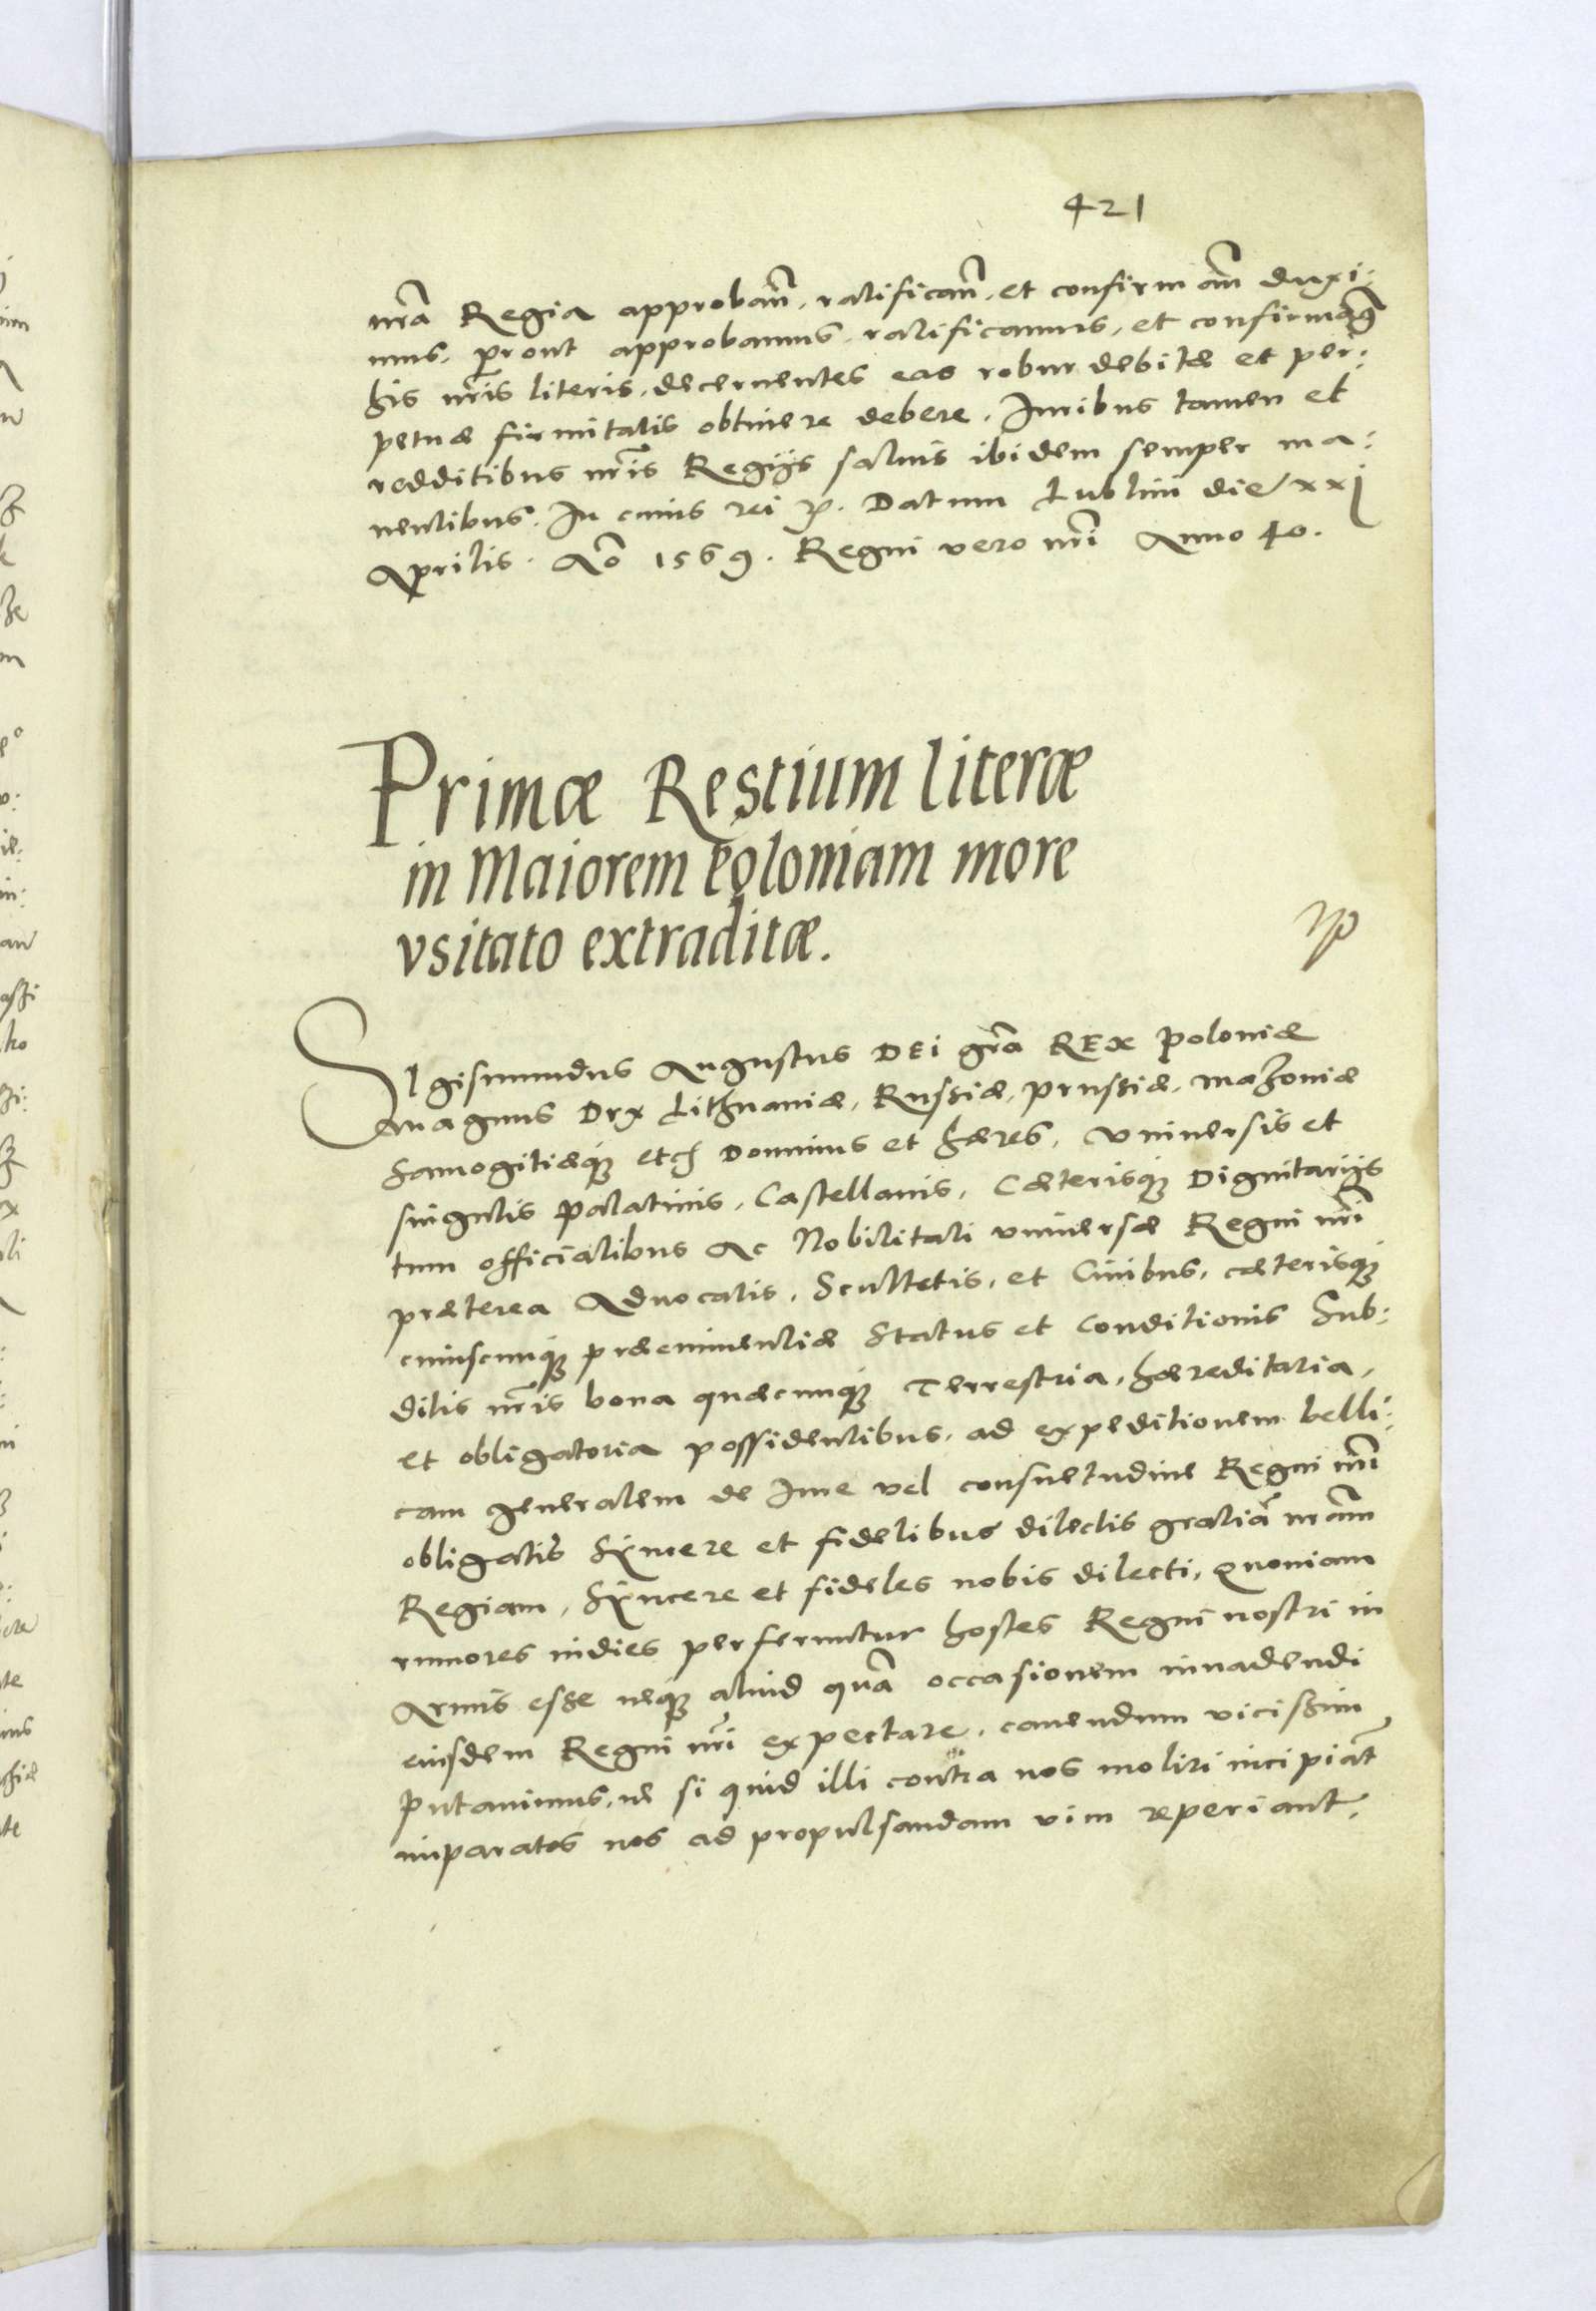 421
nr̃a Regia approban̄, ratifican̄, et confirman̄ duxi:
mus, prout approbamus, ratificamus, et confirmam9
his nr̃is literis, decernentes eas robur debitæ et per:
petuæ firmitatis obtinere debere. Iuribus tamen et
redditibus nr̃is Regijs saluis ibidem semper ma:
nentibus. In cuius rei Datum Lublini die xxj
Aprilis. Ao 1569. Regni vero nr̃i Anno 40.
Primæ Restium literæ
in Maiorem Poloniam more
vsitato extraditæ.
SIgismundus Augustus DEi gr̃a REx Poloniæ
magnus Dux Lithuaniæ, Russiæ, Prussiæ, Mazoniæ
Samogitiæq; etc Dominus et hæres. Vniuersis et
singulis Palatinis, Castellanis, Cæterisq; Dignitarijs
tum officialibus ac Nobilitati vniuersæ Regni nr̃i
præterea Aduocatis, Scultetis, et Ciuibus, cæterisq;
cuiuscunq; præeminentiæ Status et Conditionis Sub:
ditis nr̃is bona quæcunq; Terrestria, hæreditaria,
et obligatoria possidentibus, ad expeditionem belli:
cam generalem de Iure vel consuetudine Regni nr̃i
obligatis Syncere et fidelibus dilectis gratiã nr̃am
Regiam, Syncere et fideles nobis dilecti, Quoniam
rumores indies perferuntur hostes Regni nostri in
Armis esse neq; aliud quã occasionem inuadendi
eiusdem Regni nr̃i expectare, cauendum vicissim
putauimus, ne si quid illi contra nos moliri incipiãt
imparatos nos ad propulsandam vim reperiant,